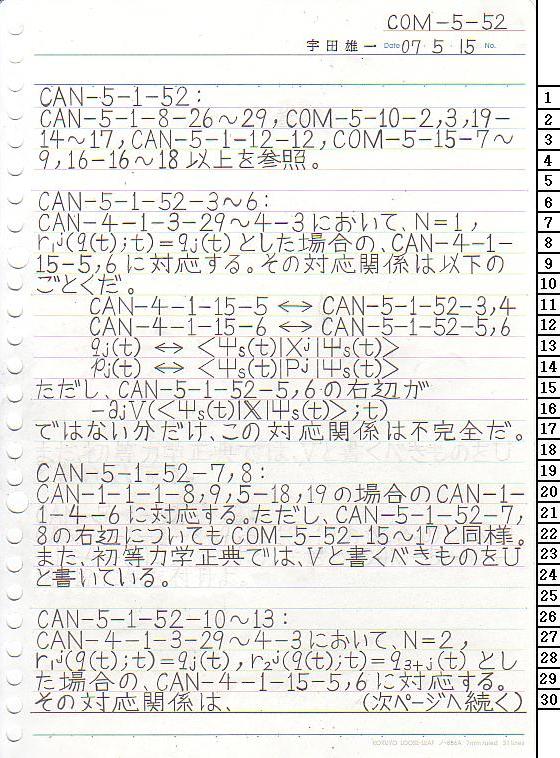 COM-5-52
宇田雄一 Date 07・5・15 No.
CAN-5-1-52:
CAN-5-1-8-26〜29,COM-5-10-2,3,19-
14〜17,CAN-5-1-12-12,COM-5-15-7〜
9,16-16〜18以上を参照。
CAN-5-1-52-3〜6:
CAN-4-1-3-29〜4-3において、N=1,
r₁ʲ(q(t);t)=qⱼ(t)とした場合の、CAN-4-1-
15-5,6に対応する。その対応関係は以下の
ごとくだ。
CAN-4-1-15-5 ⟷ CAN-5-1-52-3,4
CAN-4-1-15-6 ⟷ CAN-5-1-52-5,6
qⱼ(t) ⟷ <Ψs(t)|Xʲ|Ψs(t)>
pⱼ(t) ⟷ <Ψs(t)|Pʲ|Ψs(t)>
ただし、CAN-5-1-52-5,6の右辺が
-∂ⱼV(<Ψs(t)|𝕏|Ψs(t)>;t)
ではない分だけ、この対応関係は不完全だ。
CAN-5-1-52-7,8:
CAN-1-1-1-8,9,5-18,19の場合のCAN-1-
1-4-6に対応する。ただし、CAN-5-1-52-7,
8の右辺についてもCOM-5-52-15〜17と同様。
また、初等力学正典では、Vと書くべきものをU
と書いている。
CAN-5-1-52-10〜13:
CAN-4-1-3-29〜4-3において、N=2,
r₁ʲ(q(t);t)=qⱼ(t),r₂ʲ(q(t);t)=q₃₊ⱼ(t)とし
た場合の、CAN-4-1-15-5,6に対応する。
その対応関係は、 (次ページへ続く)
KOKUYO LOOSE-LEAF ノ-836A 7mm ruled 31 lines
1
2
3
4
5
6
7
8
9
10
11
12
13
14
15
16
17
18
19
20
21
22
23
24
25
26
27
28
29
30